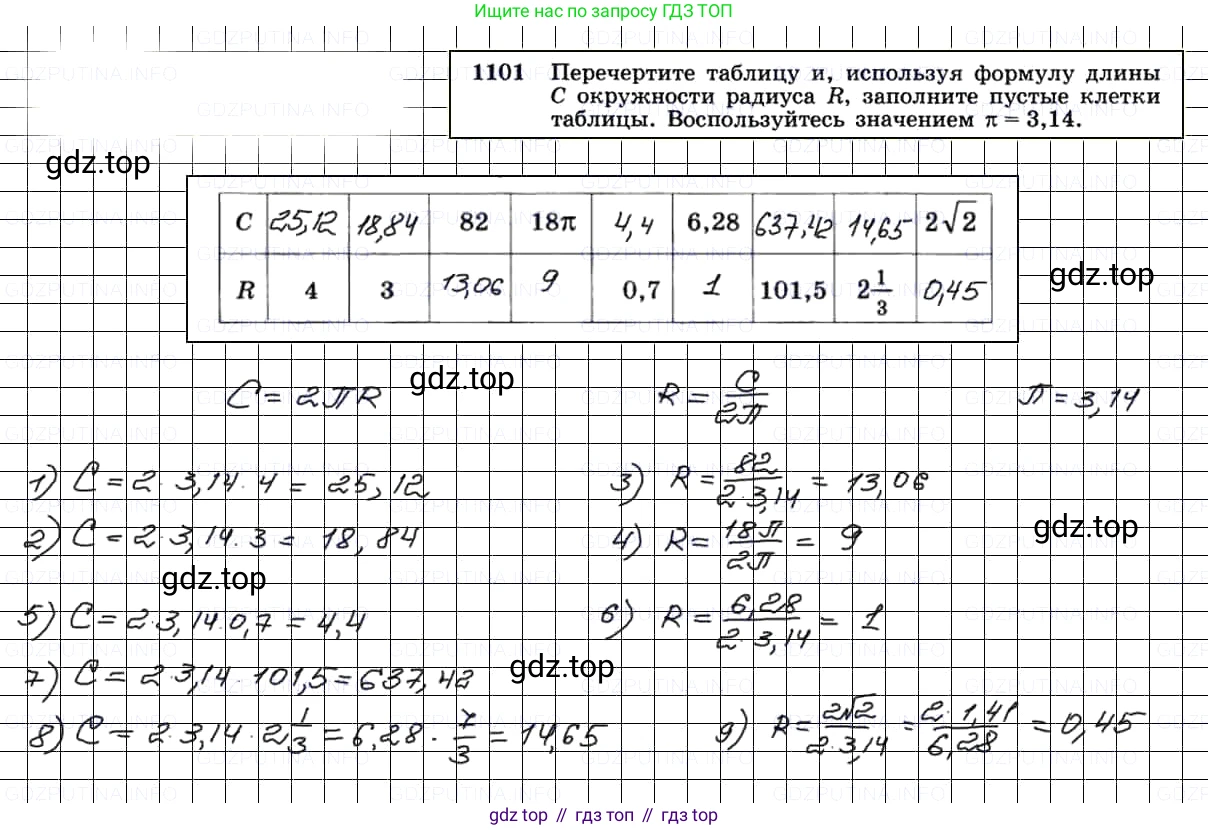 Ищите нас по запросу ГДЗ ТОП
1101 Перечертите таблицу и, используя формулу длины
C окружности радиуса R, заполните пустые клетки
таблицы. Воспользуйтесь значением π = 3,14.
gdz.top
C 25,12 18,84 82 18π 4,4 6,28 637,42 14,65 2√2
R 4 3 13,06 9 0,7 1 101,5 2 1/3 0,45
gdz.top
C = 2πR gdz.top R = C/2π π = 3,14
1) C = 2 · 3,14 · 4 = 25,12 3) R = 82/2·3,14 = 13,06
2) C = 2 · 3,14 · 3 = 18,84 4) R = 18π/2π = 9 gdz.top
gdz.top
5) C = 2·3,14·0,7 = 4,4 6) R = 6,28/2·3,14 = 1
gdz.top
7) C = 2·3,14·101,5 = 637,42
8) C = 2·3,14·2 1/3 = 6,28 · 7/3 = 14,65 9) R = 2√2/2·3,14 = 2·1,41/6,28 = 0,45
gdz top // гдз топ // gdz top
GDZPUTINA.INFO